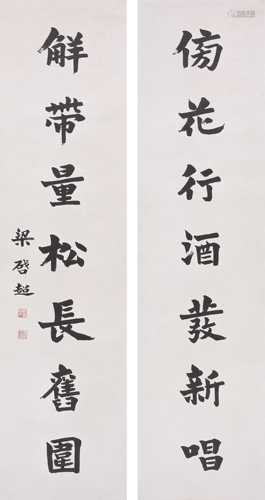 傍花行酒發新唱
解帶量松長舊圍
梁啓超